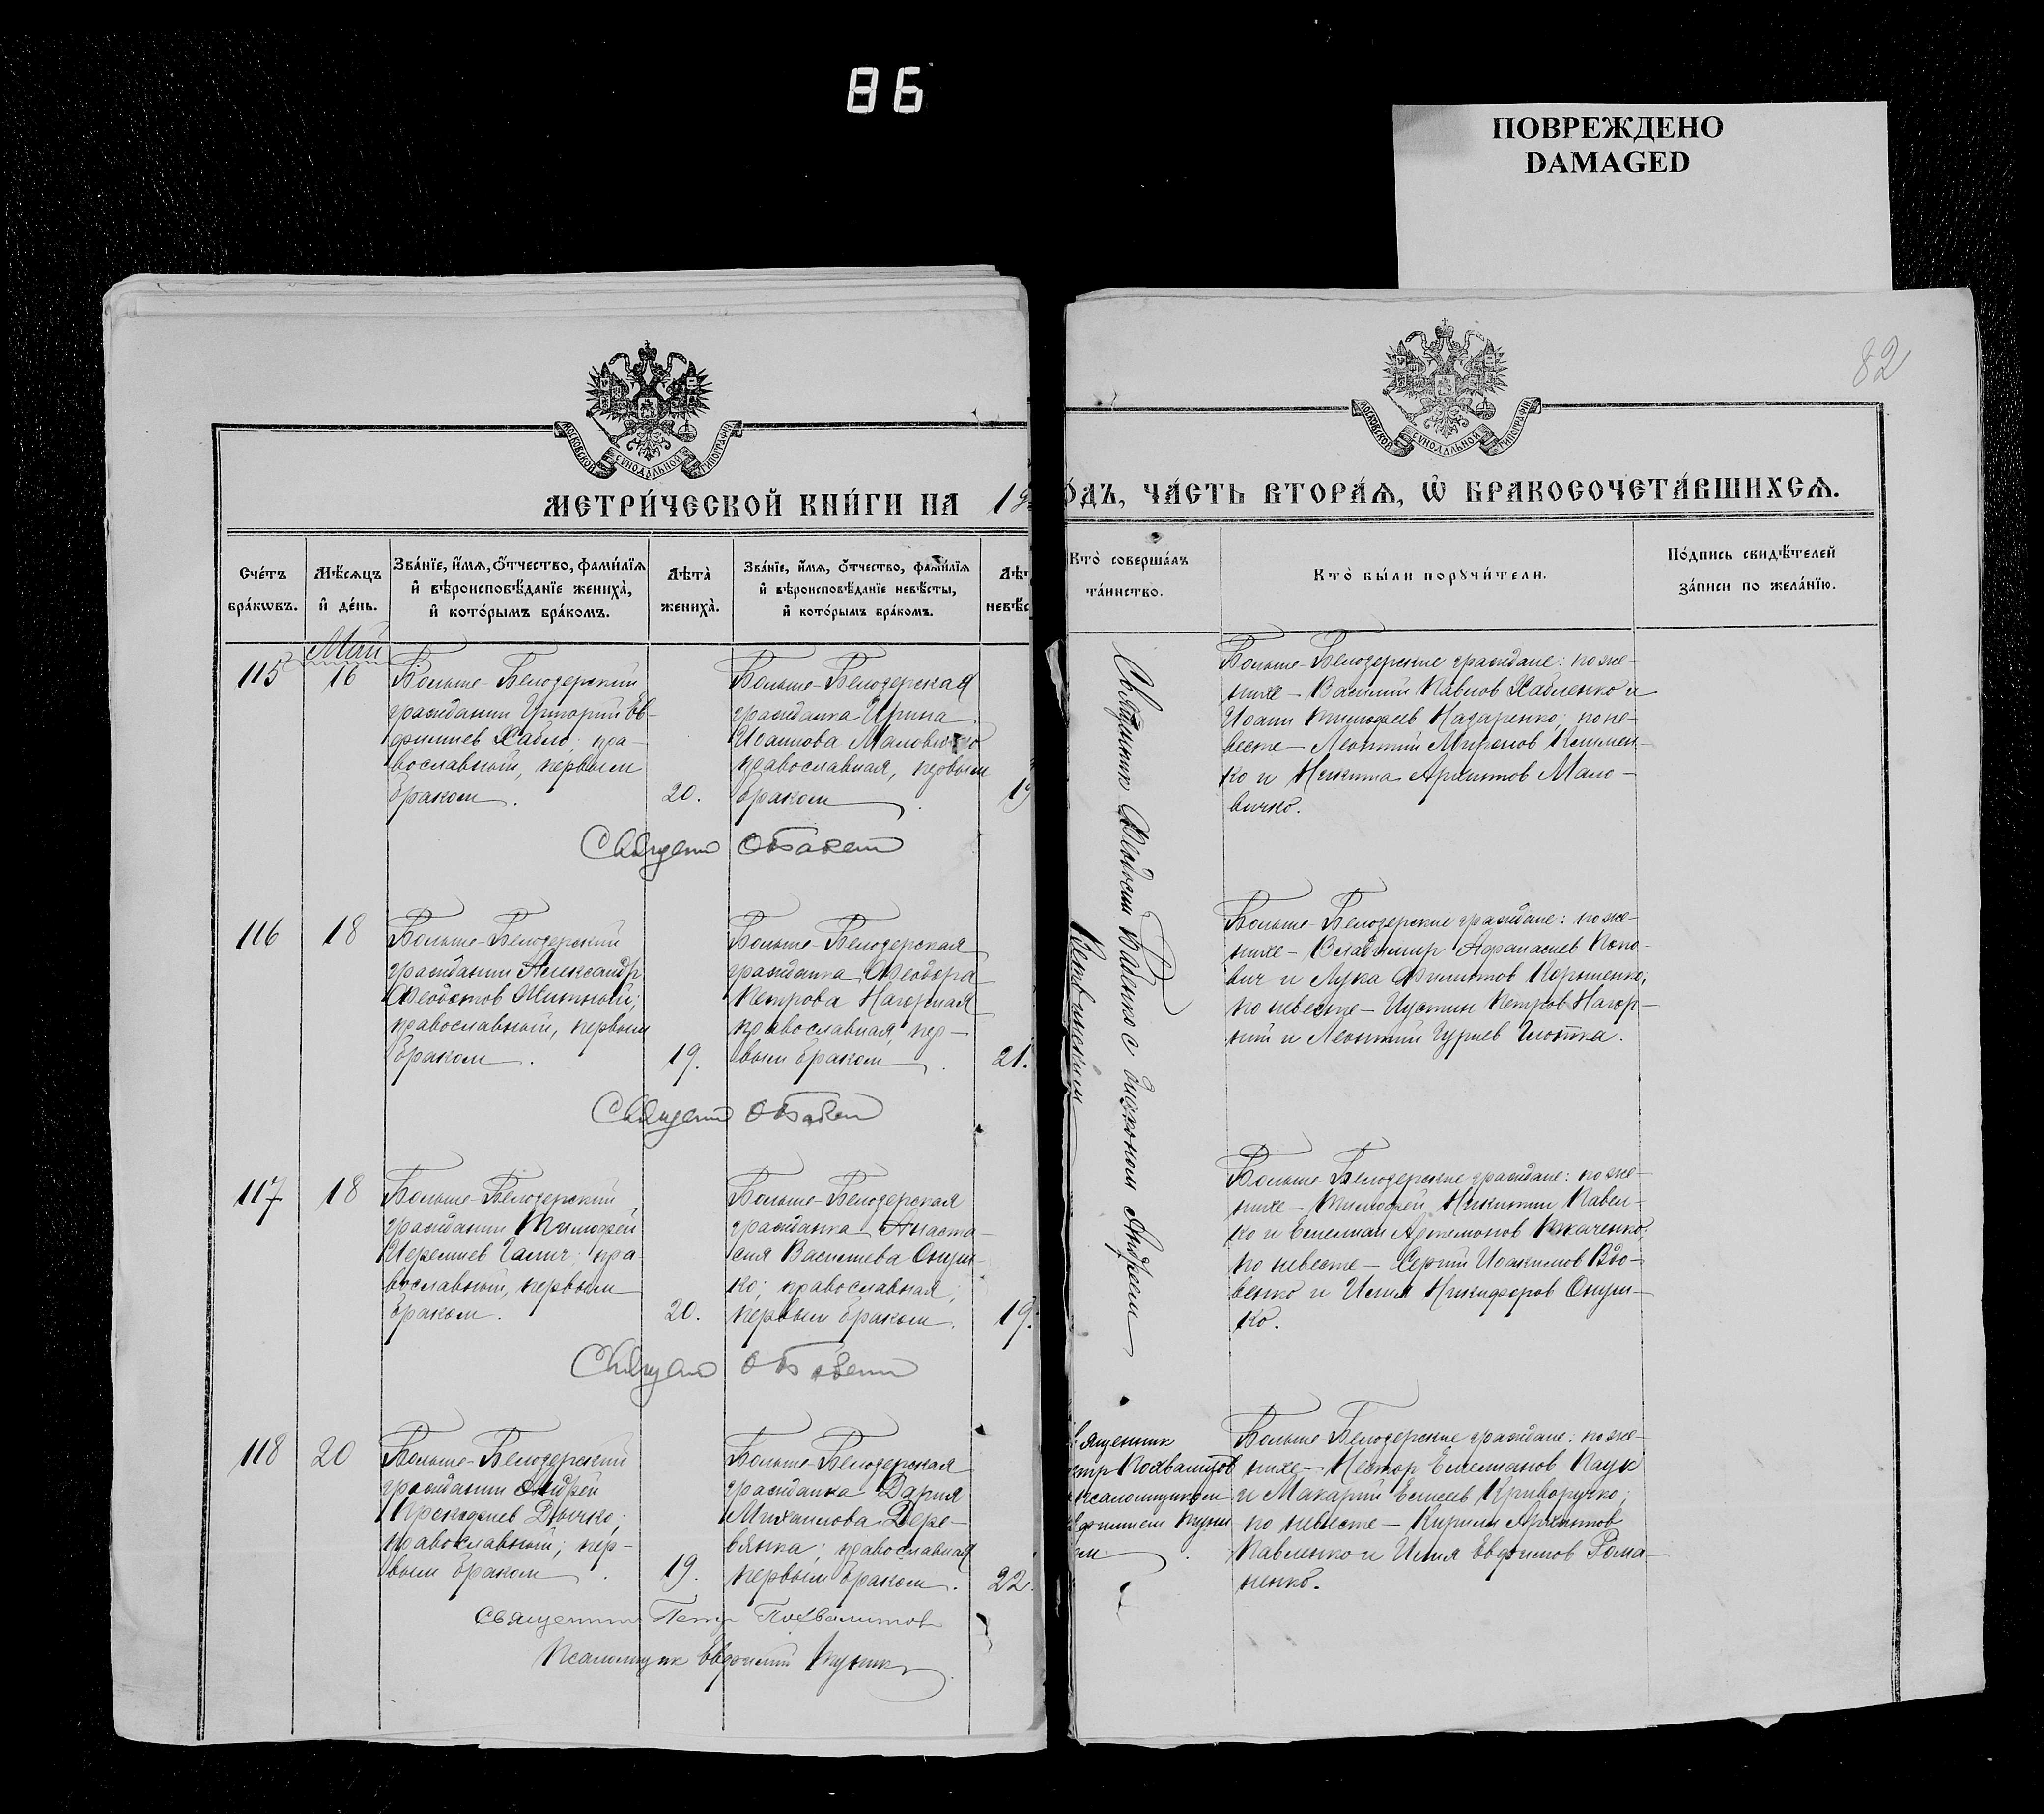 86
ПОВРЕЖДЕНО
DAMAGED
82
МОСКОВСКОЙ СѴНОДАЛЬНОЙ ТИПОГРАФІИ
МОСКОВСКОЙ СѴНОДАЛЬНОЙ ТИПОГРАФІИ
МЕТРИ́ЧЕСКОЙ КНИ́ГИ НА 19
ОДЪ, ЧА́СТЬ ВТОРА́Ѧ, Ѽ БРАКОСОЧЕТА́ВШИХСѦ.
Сче́тъ бра́кωвъ.
Мѣ́сѧцъ и҆ де́нь.
Зва́нїе, и҆́мѧ, ѻ҆́тчество, фами́лїѧ и҆ вѣроисповѣ́данїе жениха̀, и҆ кото́рымъ бра́комъ.
Лѣта̀ жениха̀.
Зва́нїе, и҆́мѧ, ѻ҆́тчество, фами́лїѧ и҆ вѣроисповѣ́данїе невѣ́сты, и҆ кото́рымъ бра́комъ.
Лѣт
невѣс
Кто̀ соверша́лъ та́инство.
Кто̀ бы́ли порꙋчи́тели.
По́дпись свидѣ́телей за́писи по жела́нїю.
Май
115
16
Больше-Белозерский
гражданин Григорий Ев-
фимиев Хабло; пра-
вославный, первым
браком.
20.
Больше-Белозерская
гражданка Ирина
Маловичко
православная, первым
браком.
19
Больше-Белозерские граждане: по же-
нихе – Василий Павлов Хабленко и
Иоанн Тимофеев Назаренко; по не-
весте – Леонтий Миронов Климен-
ко и Никита Архипов Мало-
вичко.
116
18
Больше-Белозерский
гражданин Александр
Феодотов Житный;
православный, первым
браком.
19.
Больше-Белозерская
гражданка Феодора
Петрова Нагорная
православная, пер-
вым браком.
21.
Больше-Белозерские граждане: по же-
нихе – Владимир Афанасиев Попо-
вич и Лука Филиппов
по невесте – Иустин Петров Нагор-
ный и Леонтий Гуриев
117
18
Больше-Белозерский
гражданин Тимофей
Иеремиев Галич; пра-
вославный, первым
браком.
20.
Больше-Белозерская
гражданка Анаста-
сия Васильева Онуш-
ко; православная;
первым браком.
19.
Больше-Белозерские граждане: по же-
нихе – Тимофей Никитин Павлен-
ко и Емелиан Артемонов Ткаченко;
по невесте – Сергий Иоакимов Вдо-
венко и Илия Никифоров Онуш-
ко.
Священник Феодосий с диаконом Андреем
118
20
Больше-Белозерский
гражданин Андрей
Прокофиев Дычко;
православный; пер-
вым браком.
19.
Больше-Белозерская
гражданка Дария
Михаилова Дере-
вянка; православная
первым браком.
22.
ященник
етр Похвалитов
псаломщиком
Больше-Белозерские граждане: по же-
нихе – Нестор Емелианов Паук
и Макарий Елисеев Криворучко;
по невесте – Кирилл Архипов
Павленко и Илия Евфимов Рома-
ненко.
Священник Петр Похвалитов
Псаломщик Евфимий